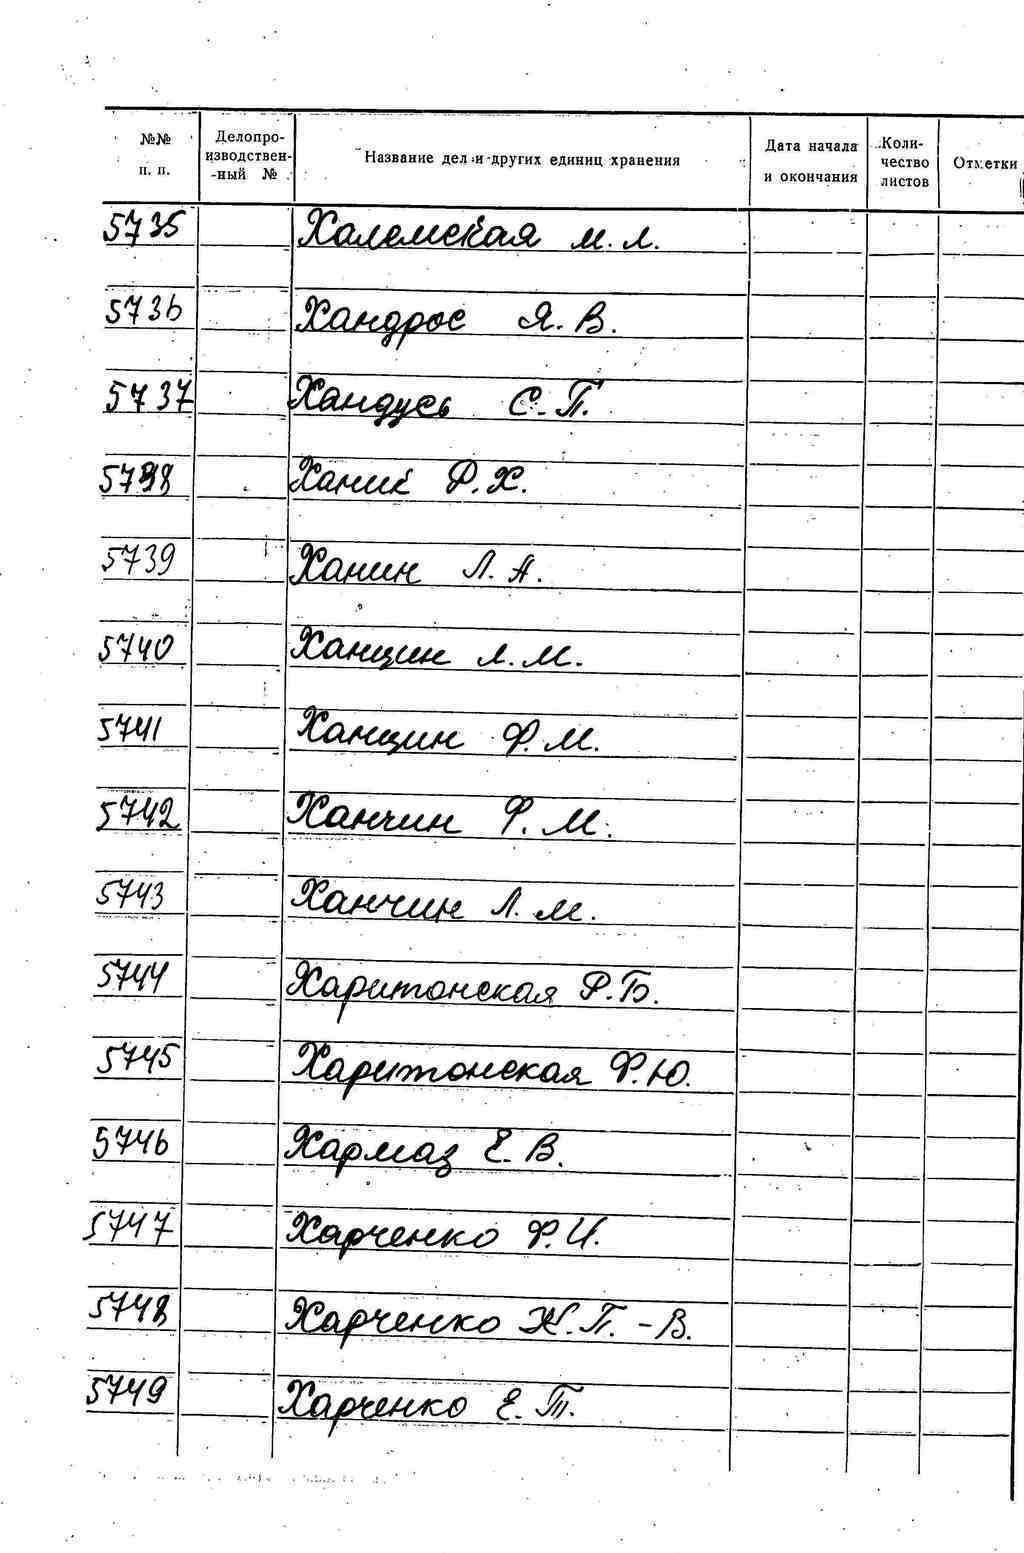 №№ п. п. Делопроизводственный № Название дел и других единиц хранения Дата начала и окончания Количество листов Отметки
5735 Халемская М. Л.
5736 Хандрос Я. В.
5737 Хандусь С. П.
5738 Ханик Ф. Х.
5739 Ханин Л. А.
5740 Ханцин Л. М.
5741 Ханцин Ф. М.
5742 Ханчин Ф. М.
5743 Ханчин Л. М.
5744 Харитонская Р. Б.
5745 Харитонская Ф. Ю.
5746 Хармаз Е. В.
5747 Харченко Ф. И.
5748 Харченко Ж. П. - В.
5749 Харченко Е. Т.